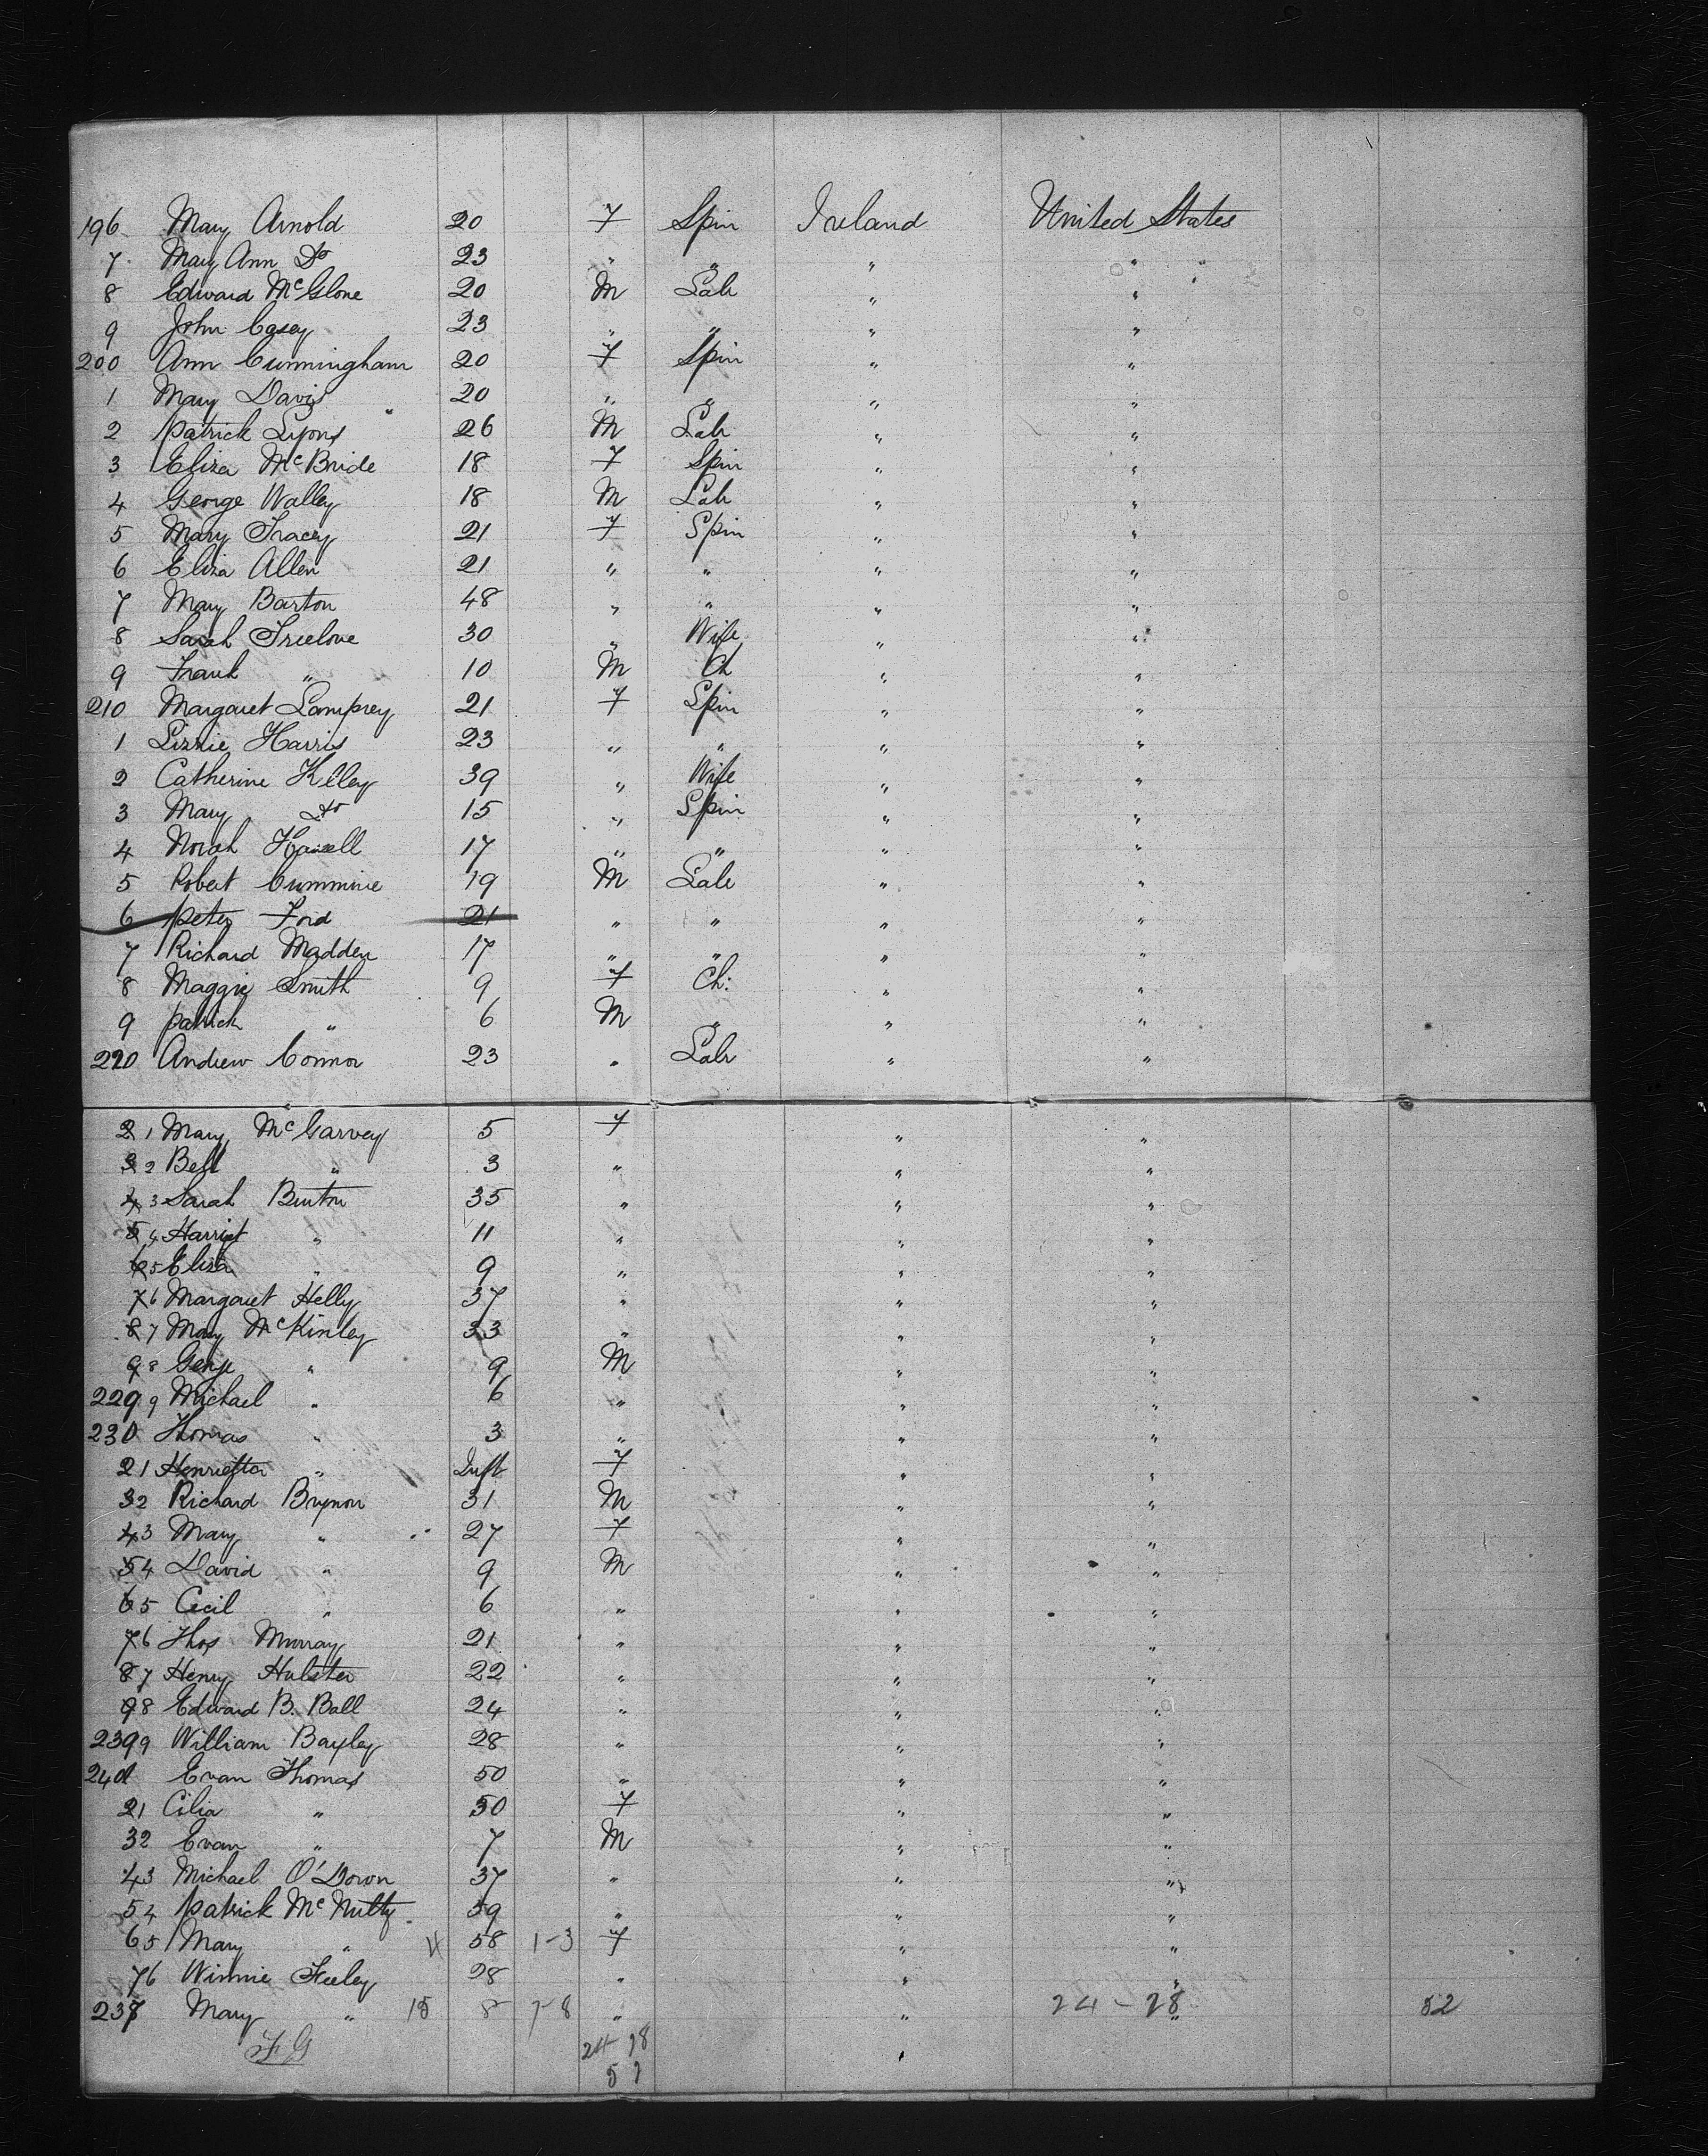 196 Mary Arnold 20 F Spin Ireland United States
7 Mary Ann Do 23 " " " "
8 Edward McGlone 20 M Lab " "
9 John Casey 23 " " " "
200 Ann Cunningham 20 F Spin " "
1 Mary Davis 20 " " " "
2 Patrick Lyons 26 M Lab " "
3 Eliza McBride 18 F Spin " "
4 George Walley 18 M Lab " "
5 Mary Tracey 21 F Spin " "
6 Eliza Allen 21 " " " "
7 Mary Barton 48 " " " "
8 Sarah Freelove 30 " Wife " "
9 Frank " 10 M Ch " "
210 Margaret Lamprey 21 F Spin " "
1 Lizzie Harris 23 " " " "
2 Catherine Kelley 39 " Wife " "
3 Mary do 15 " Spin " "
4 Norah 17 " " " "
5 Robert Cummine 19 M Lab " "
6 Peter Ford 21 " " " "
7 Richard Madden 17 " " " "
8 Maggie Smith 9 F Ch: " "
9 Patrick " 6 M " " "
220 Andrew Connor 23 " Lab " "
21 Mary McGarvey 5 F " "
32 Bell " 3 " " "
43 Sarah Burton 35 " " "
54 Harriet " 11 " " "
65 Eliza " 9 " " "
76 Margaret Kelly 37 " " "
87 Mary McKinley 33 " " "
98 George " 9 M " "
2299 Michael " 6 " " "
230 Thomas " 3 " " "
21 Henrietta " Inft F " "
32 Richard Brynon 31 M " "
43 Mary " 27 F " "
54 David " 9 M " "
65 Cecil " 6 " " "
76 Thos Murray 21 " " "
87 Henry Hulster 22 " " "
98 Edward B. Ball 24 " " "
2399 William Bayley 28 " " "
240 Evan Thomas 50 " " "
21 Cilia " 50 F " "
32 Evan " 7 M " "
43 Michael O'Down 37 " " "
54 Patrick McNulty 59 " " "
65 Mary " 58 1-3 F " "
76 Winnie Feeley 28 " " "
237 Mary " 15 8 7-8 " " " 24-28 52
FG 24 28 "
52